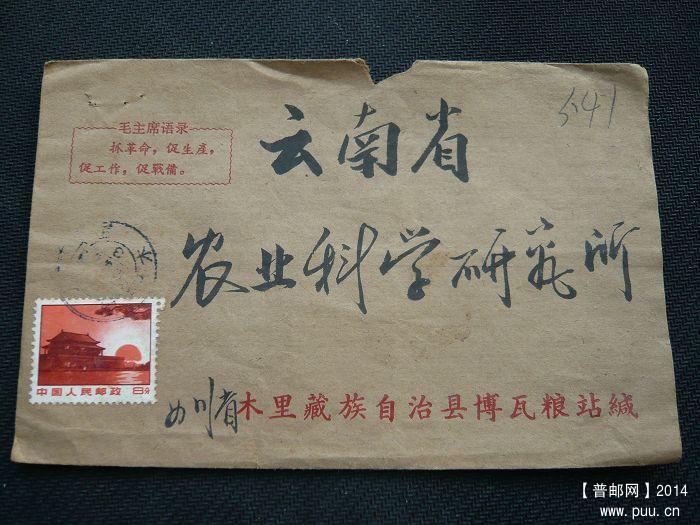 毛主席语录
抓革命，促生產，
促工作，促戰備。
541
云南省
农业科学研究所
木
中国人民邮政 8分
四川省木里藏族自治县博瓦粮站缄
【普邮网】2014
www.puu.cn